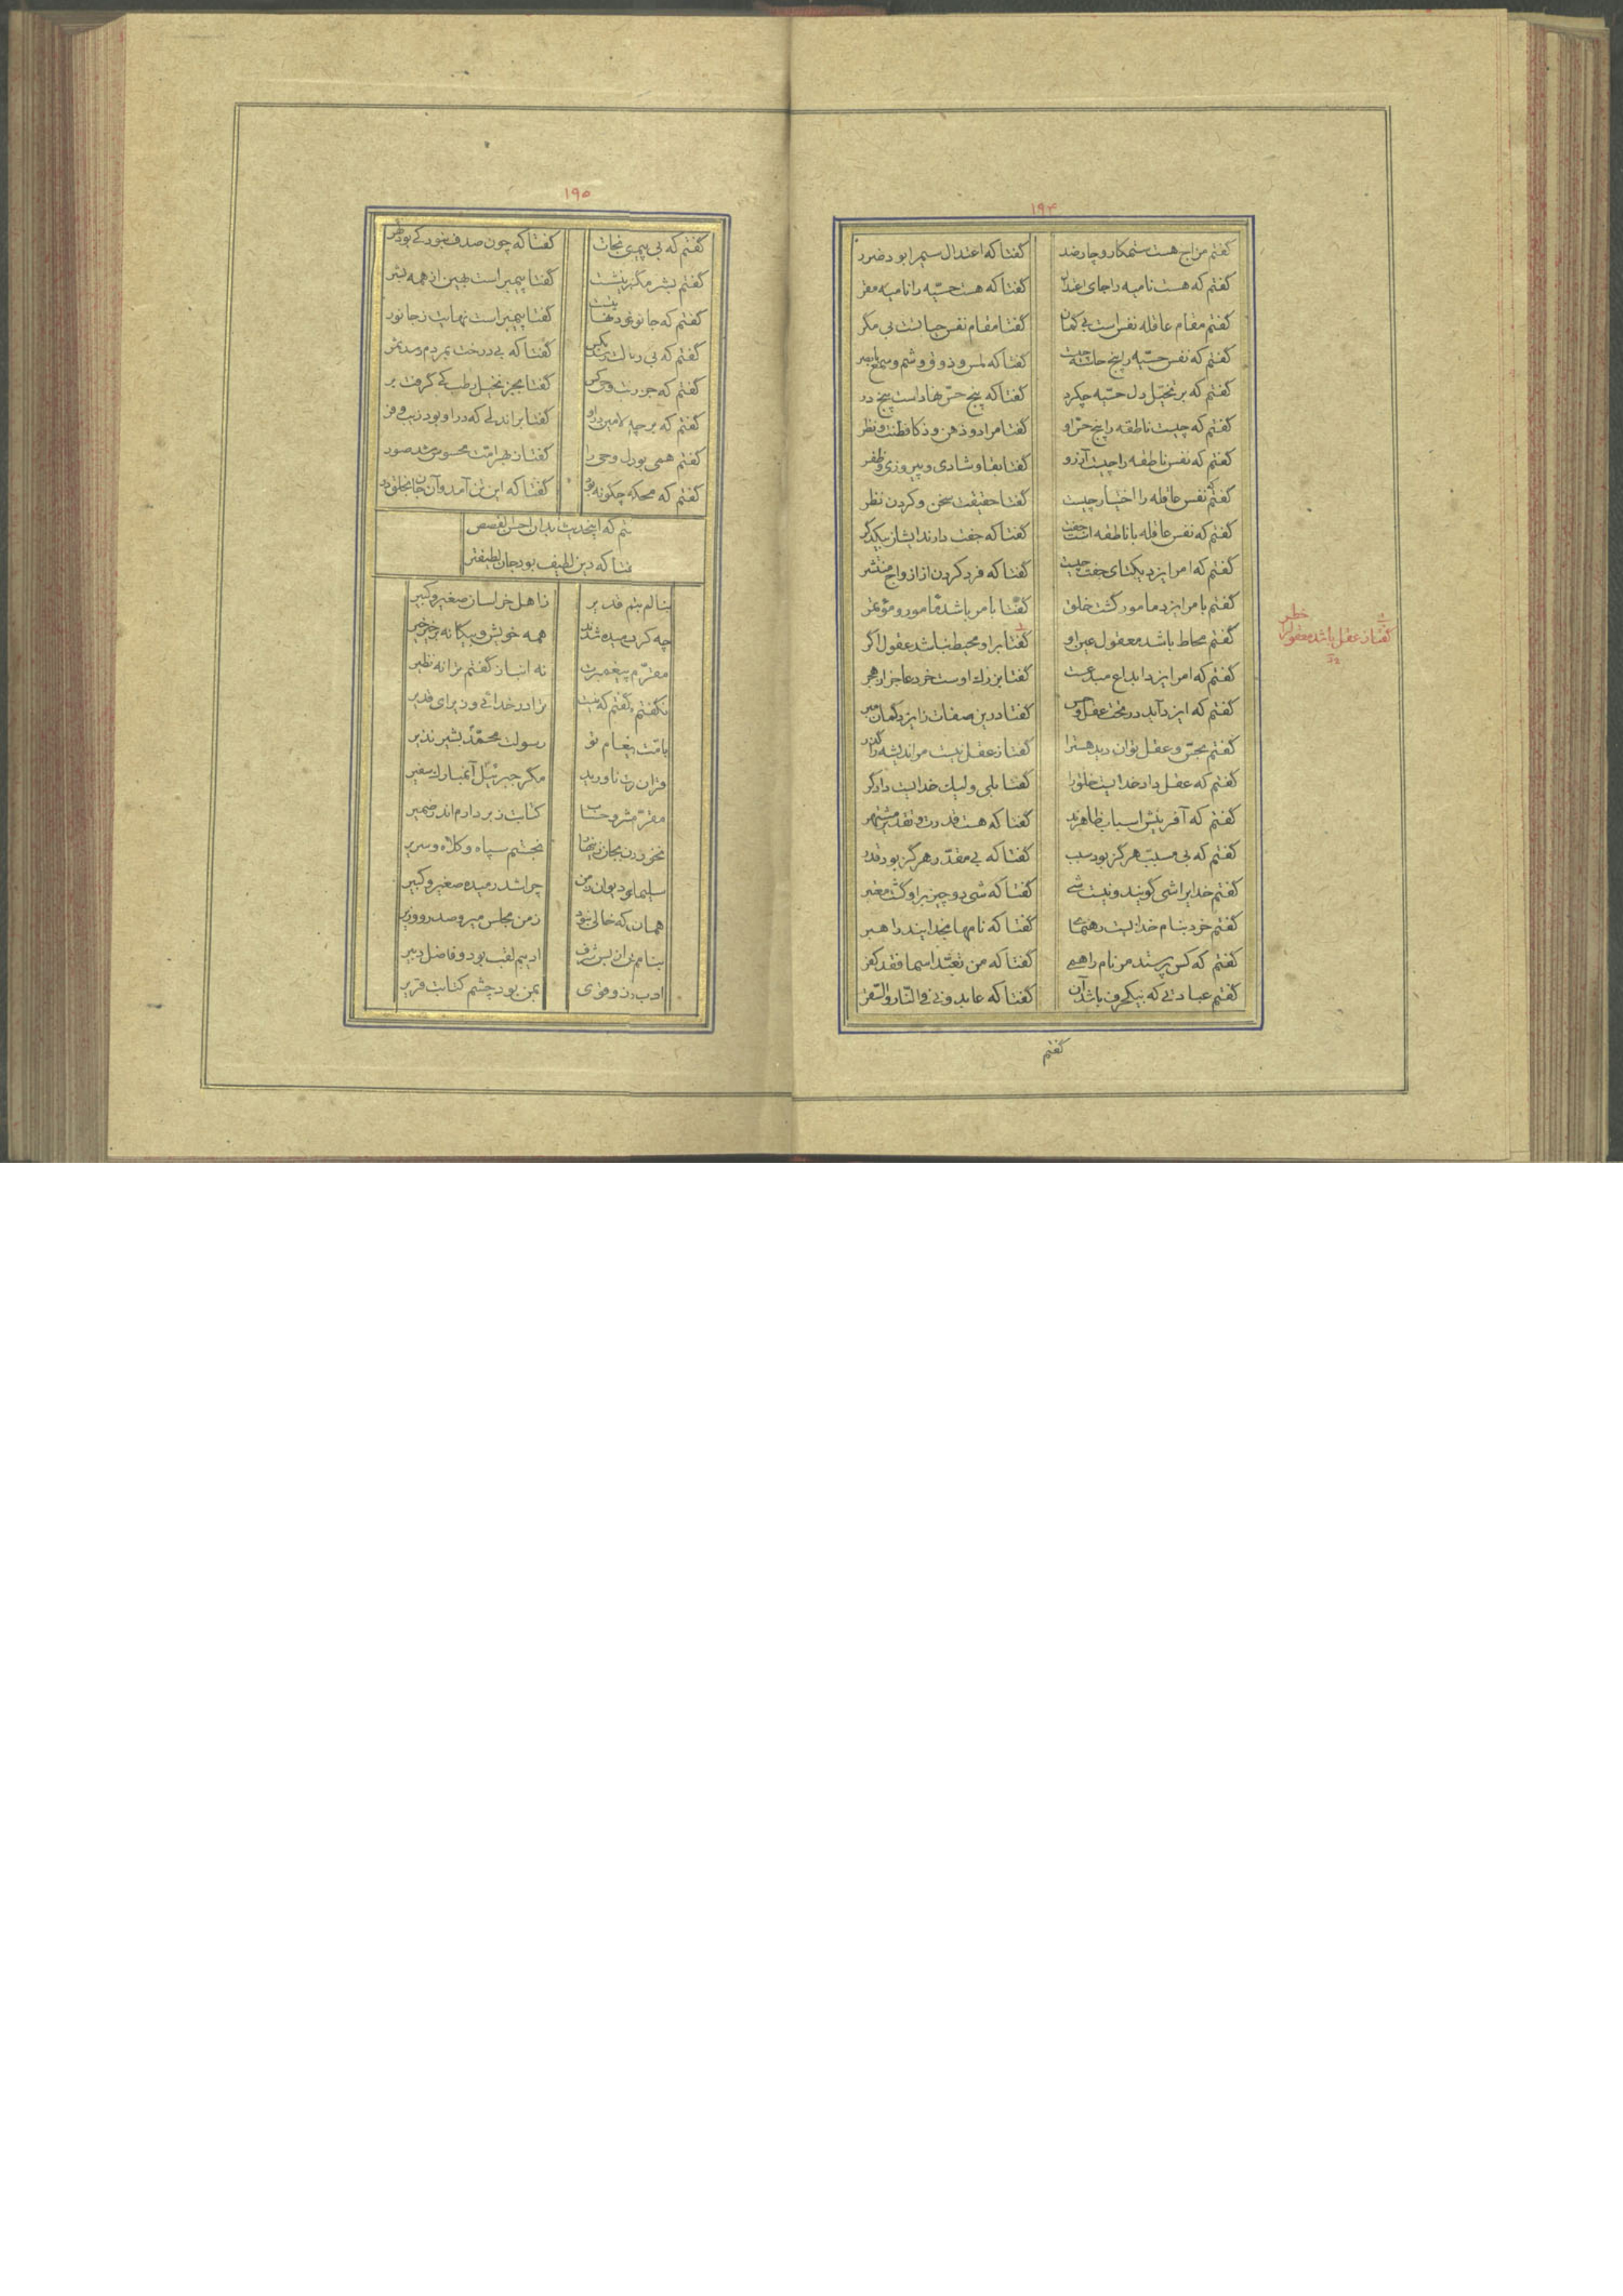 ۱۹۴
گفتم مزاج هست ستمکار و چار ضد گفتا که اعتدال سیم را بود ضرر
گفتم که هست نامیه را جای گفتا که هست حسّیه را نامیه مقر
گفتم مقام عاقله نفس است بی گمان گفتا مقام نفس حیاتست بی مگر
گفتم که نفس حسّیه را پنج حاسه چیست گفتا که لمس و ذوق و شم و سمع با بصر
گفتم که بر تخیّل دل حسّیه چکرد گفتا که پنج حسّ نهاد است پنج در
گفتم که چیست ناطقه را پنج حسّ او گفتا مراد و ذهن و ذکا فطنت و نظر
گفتم که نفس ناطقه را چیست آرزو گفتا بقا و شادی و پیروزی و ظفر
گفتم که نفس عاقله را اختیار چیست گفتا حقیقت سخن و کردن نظر
گفتم که نفس عاقله با ناطقه جفت است گفتا که جفت دارند ایشان یکدگر
گفتم که امر ایزد یکتای جفت چیست گفتا که فرد کردن از ازواج منتشر
گفتم بامر ایزد مامور گشت خلق گفتا بامر باشد مامور و مؤتمر
گفتم محاط باشد معقول عین او گفتا براو محیط نباشد عقول اگر
گفتا ز عقل باشد معقول خطر
گفتم که امر ایزد ابداع مبدعست گفتا بزرك اوست خرد عاجز از هجر
گفتم که ایزد آید در تحت عقل و حس گفتا در این صفات ز ایزد گمان مبر
گفتم بحسّ و عقل توان دید هست را گفتا ز عقل نیست مر اندیشه را گذر
گفتم که عقل داد خدایست خلق را گفتا بلی ولیك خدایست دادگر
گفتم که آفرینش اسباب ظاهرند گفتا که هست قدرت و تقدیر مشتهر
گفتم که بی مسبّب هرگز بود سبب گفتا که بی مقدّر هرگز بود قدر
گفتم خدایرا شی گویند و نیست شی گفتا که شی دو چیز براو گشت معتبر
گفتم خرد بنام خدایست رهنمای گفتا که نامها بخدایند راهبر
گفتم که کس پرستد من نام را همی گفتا که من تعبّد اسما فقد کفر
گفتم عبادتی که بیکحرف باشد آن گفتا که عابدونی فی النّار و السّقر
گفتم
۱۹۵
گفتم که بی پیمبری نجات گفتا که چون صدف نبود کی بود
گفتم بشر مگر نیست گفتا پیمبر است بهین از همه بشر
گفتم که جانور گفتا پیمبر است نهایت ز جانور
گفتم که بی رسالت گفتا که بی درخت بمردم رسد ثمر
گفتم که جز گفتا بجز نخیل رطب کی گرفت بر
گفتم که بر چه گفتا بر اندلی که در او بود زیب و فر
گفتم همی بود دل وحی را گفتا ز بهر امّت محسوس شد صور
گفتم که محکه چگونه گفتا که این تن آمد و آن جان
تم که اینحدیث بدان احسن القصص
فتا که دین لطیف بود جان لطیفتر
بنالم بتم قدیر ز اهل خراسان صغیر و کبیر
چه کردم رمیده شدند همه خویش و بیگانه بر خیر خیر
مقرّم پیغمبرت نه انباز گفتم ترا نه نظیر
نگفتم گفتم که نیست ترا در خدائی وزیر ای قدیر
بامّت پیغام تو رسولت محمّد بشیر نذیر
قران را نیاورید مگر جبرئیل آنمبارك سفیر
مقرّم حساب کتابت ز بر دارم اندر ضمیر
بچشم سپاه و کلاه و سریر
سلیمان دیوان چرا شد رمیده صغیر و کبیر
همان که خالی نبود ز من مجلس میر و صدر و وزیر
بنام ادیبم لقب بود و فاضل دبیر
ادب بمن بود چشم کتابت قریر